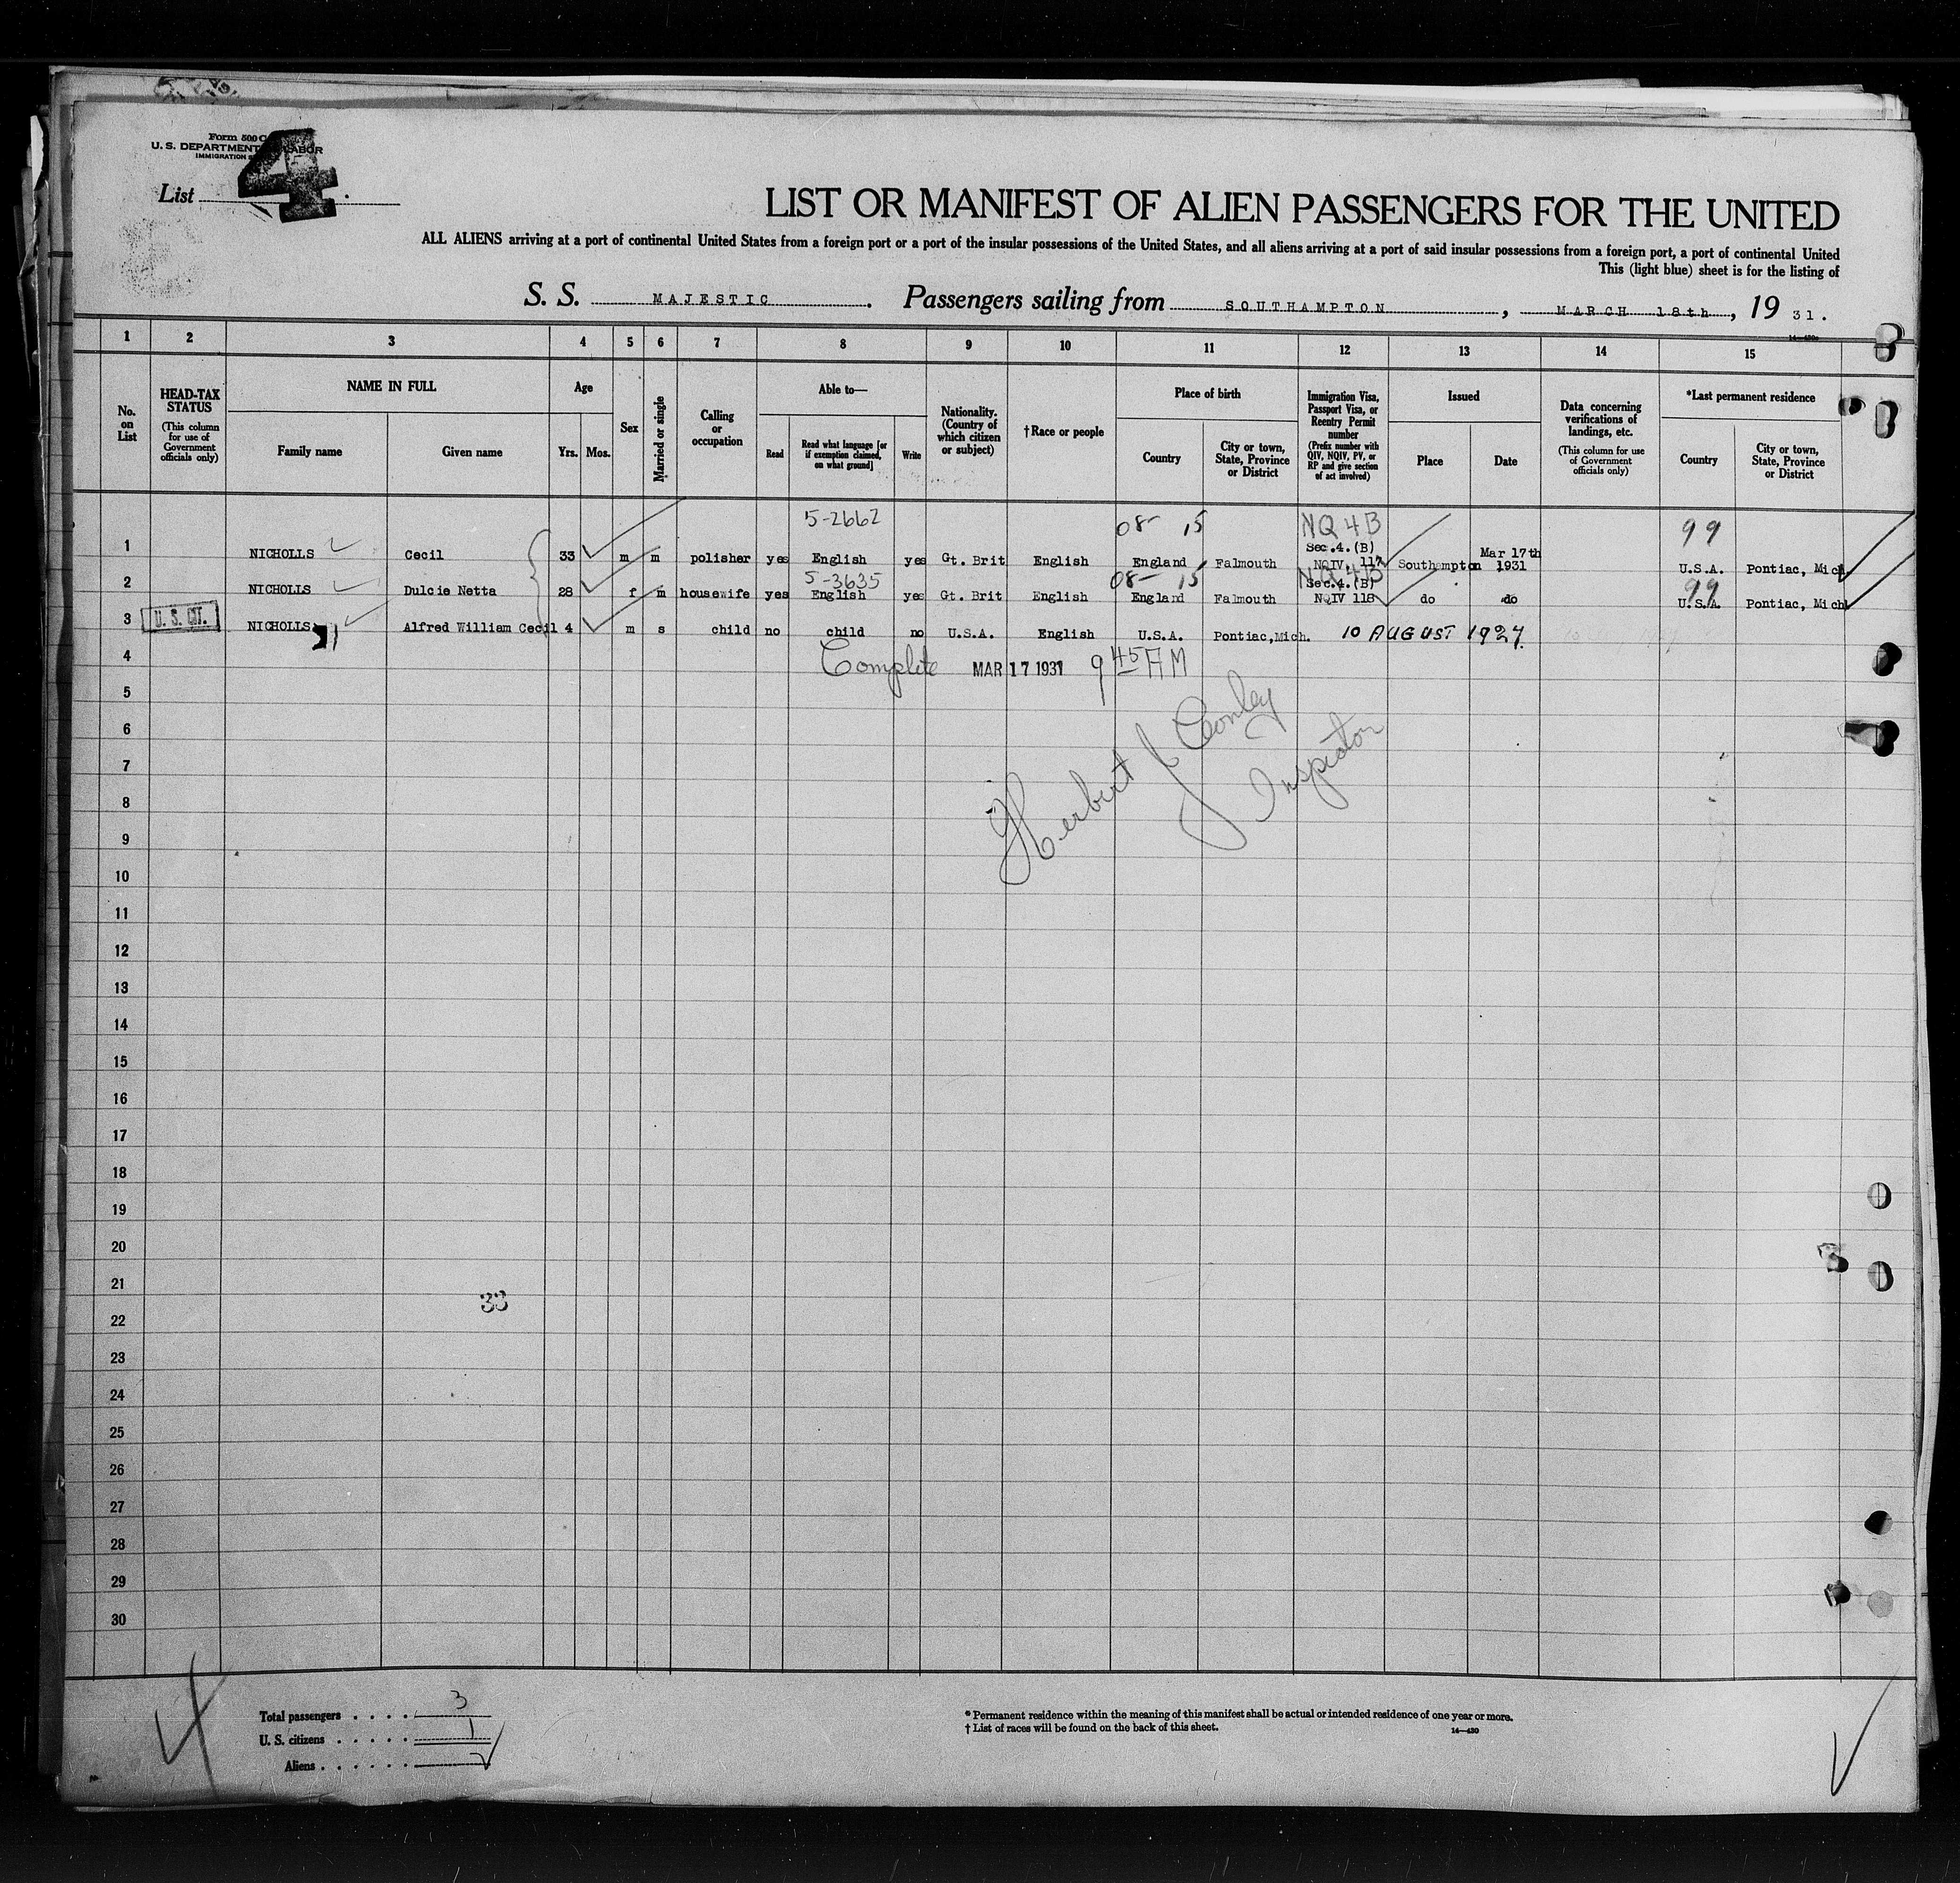 Form 500 C
U. S. DEPARTMENT LABOR
IMMIGRATION
List 4
LIST OR MANIFEST OF ALIEN PASSENGERS FOR THE UNITED
ALL ALIENS arriving at a port of continental United States from a foreign port or a port of the insular possessions of the United States, and all aliens arriving at a port of said insular possessions from a foreign port, a port of continental United
This (light blue) sheet is for the listing of
S. S. MAJESTIC. Passengers sailing from SOUTHAMPTON, MARCH 18th, 19 31.
1 2 3 4 5 6 7 8 9 10 11 12 13 14 15
No. on List
HEAD-TAX STATUS (This column for use of Government officials only)
NAME IN FULL
Family name
Given name
Age
Yrs. Mos.
Sex
Married or single
Calling or occupation
Able to—
Read
Read what language [or if exemption claimed, on what ground]
Write
Nationality. (Country of which citizen or subject)
†Race or people
Place of birth
Country
City or town, State, Province or District
Immigration Visa, Passport Visa, or Reentry Permit number (Prefix number with QIV, NQIV, PV, or RP and give section of act involved)
Issued
Place
Date
Data concerning verifications of landings, etc. (This column for use of Government officials only)
*Last permanent residence
Country
City or town, State, Province or District
5-2662 08- 15 NQ 4B 99
1 NICHOLLS Cecil 33 m m polisher yes English yes Gt. Brit English England Falmouth Sec.4.(B) NQIV. 117 Southampton Mar 17th 1931 U.S.A. Pontiac, Mich.
5-3635 08- 15 NQ 4B 99
2 NICHOLLS Dulcie Netta 28 f m housewife yes English yes Gt. Brit English England Falmouth Sec.4.(B) NQIV 118 do do U.S.A. Pontiac, Mich
3 U. S. CIT. NICHOLLS Alfred William Cecil 4 m s child no child no U.S.A. English U.S.A. Pontiac, Mich. 10 AUGUST 1927.
4 Complete MAR 17 1931 9 45 AM
5
6
7
8
Herbert J Conley
Inspector
9
10
11
12
13
14
15
16
17
18
19
20
21
33
22
23
24
25
26
27
28
29
30
Total passengers . . . . 3
U. S. citizens . . . . . 1
Aliens . . . . . . 2
* Permanent residence within the meaning of this manifest shall be actual or intended residence of one year or more.
† List of races will be found on the back of this sheet. 14—430